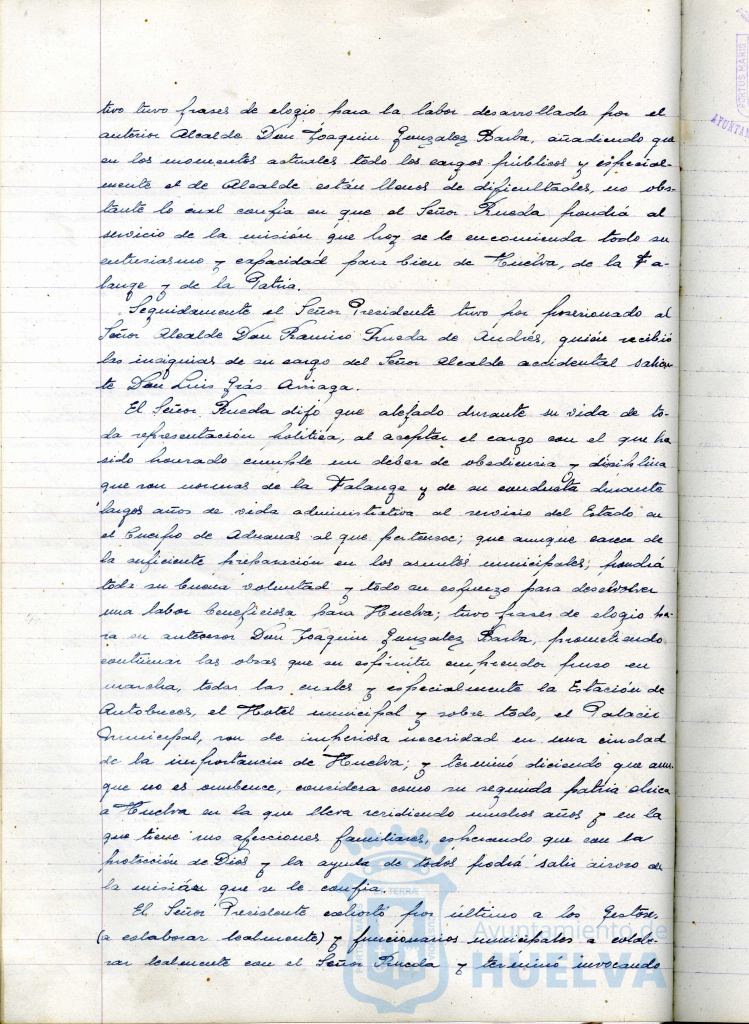 tivo tuvo frases de elogio para la labor desarrollada por el
anterior Alcalde Don Joaquin González Barba, añadiendo que
en los momentos actuales todo los cargos públicos y especial-
mente el de Alcalde están llenos de dificultades, no obs-
tante lo cual confia en que el Señor Rueda pondrá al
servicio de la misión que hoy se le encomienda todo su
entusiasmo y capacidad para bien de Huelva, de la Fa-
lange y de la Patria.
Seguidamente el Señor Presidente tuvo por posesionado al
Señor Alcalde Don Ramiro Rueda de Andrés, quien recibió
las insignias de su cargo del Señor Alcalde accidental salien-
te Don Luis Grás Arriaga.
El Señor Rueda dijo que alejado durante su vida de to-
da representación politica, al aceptar el cargo con el que ha
sido honrado cumple un deber de obediencia y disciplina
que son normas de la Falange y de su conducta durante
largos años de vida administrativa al servicio del Estado en
el Cuerpo de Aduanas al que pertenece; que aunque carece de
la suficiente preparación en los asuntos municipales, pondrá
toda su buena voluntad y todo su esfuerzo para desolver
una labor beneficiosa para Huelva; tuvo frases de elogio pa-
ra su antecesor Don Joaquin González Barba, prometiendo
continuar las obras que su espiritu emprendor puso en
marcha, todas las cuales y especialmente la Estación de
Autobuces, el Hotel municipal y sobre todo, el Palacio
Municipal, son de imperiosa necesidad en una ciudad
de la importancia de Huelva; y terminó diciendo que aun-
que no es onubence, considera como su segunda patria chica
a Huelva en la que lleva residiendo muchos años y en la
que tiene sus afecciones familiares, esperando que con la
protección de Dios y la ayuda de todos podrá salir airoso de
la misión que se le confia.
El Señor Presidente exhortó por último a los Gestores
(a colaborar lealmente) y funcionarios municipales a colabo-
rar lealmente con el Señor Rueda y terminó invocando
Ayuntamiento de
HUELVA
PORTUS MARIS
AYUNTAM